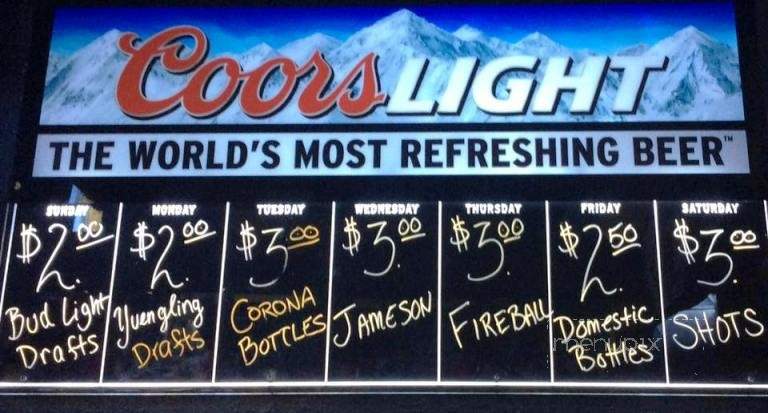 Coors LIGHT
THE WORLD'S MOST REFRESHING BEER™
SUNDAY
$2.00
Bud Light
Drafts
MONDAY
$2.00
Yuengling
Drafts
TUESDAY
$3.00
CORONA
BOTTLES
WEDNESDAY
$3.00
JAMESON
THURSDAY
$3.00
FIREBALL
FRIDAY
$2.50
Domestic
Bottles
SATURDAY
$3.00
SHOTS
menupix